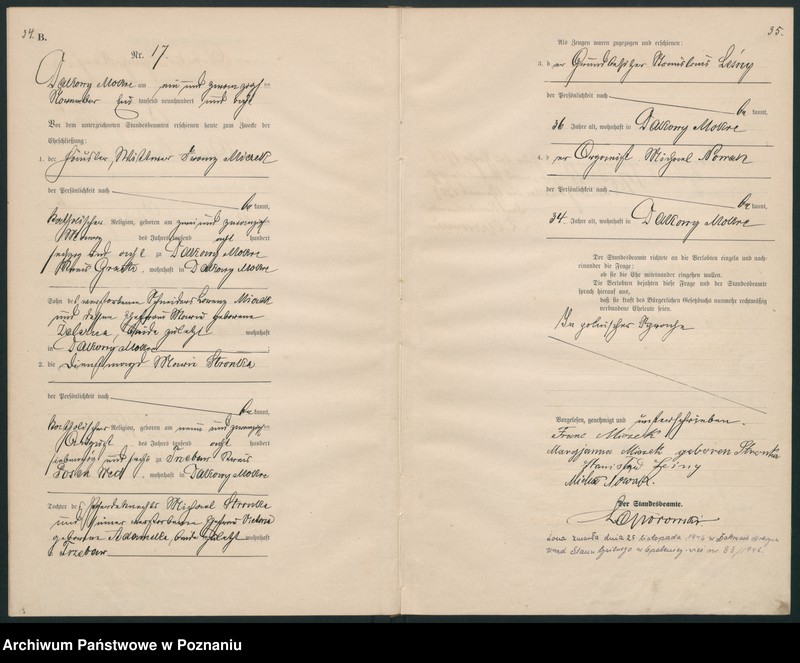 34. B.
Nr. 17.
Dalkowy Mokre am ein und zwanzigsten
November Eins tausend neunhundert und acht
Vor dem unterzeichneten Standesbeamten erschienen heute zum Zwecke der
Eheschließung:
1. der Häusler, Wittwer Franz
der Persönlichkeit nach
be kannt,
katholischer Religion, geboren am zwei und zwanzigsten
des Jahres tausend acht hundert
sechzig und acht zu Dalkowy Mokre
Kreis , wohnhaft in Dalkowy Mokre
Sohn des verstorbenen Schneiders Lorenz
und dessen Ehefrau Maria geborene
, beide zuletzt wohnhaft
in Dalkowy Mokre
2. die Dienstmagd Maria Stronka
der Persönlichkeit nach
be kannt,
katholischer Religion, geboren am neun und zwanzigsten
August des Jahres tausend acht hundert
siebenzig und sechs zu Trzebaw Kreis
Posen West , wohnhaft in Dalkowy Mokre
Tochter des Pferdeknechts Michael Stronka
und seiner verstorbenen Ehefrau Victoria
geborene , beide zuletzt wohnhaft
in Trzebaw
35.
Als Zeugen waren zugezogen und erschienen:
3. der Grundbesitzer Stanislaus Leśny
der Persönlichkeit nach
be kannt,
36 Jahre alt, wohnhaft in Dalkowy Mokre
4. der Organist Michael Nowak
der Persönlichkeit nach
be kannt,
34 Jahre alt, wohnhaft in Dalkowy Mokre
Der Standesbeamte richtete an die Verlobten einzeln und nach-
einander die Frage:
ob sie die Ehe miteinander eingehen wollen.
Die Verlobten bejahten diese Frage und der Standesbeamte
sprach hierauf aus,
daß sie kraft des Bürgerlichen Gesetzbuchs nunmehr rechtmäßig
verbundene Eheleute seien.
In polnischer Sprache
Vorgelesen, genehmigt und unterschrieben.
Franc
Maryjanna geboren Stronka
Stanisław Leśny
Michał Nowak.
Der Standesbeamte.
żona zmarła dnia 25 listopada 1946 w
Urząd Stanu Cywilnego w 1946.
Archiwum Państwowe w Poznaniu